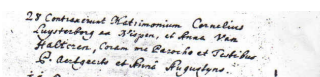 28 Contraxerunt Matrimonium Cornelius
Luysterborg ex Nispen, et Anna Van
Halteren, Coram me Parocho et Testibus
P. Aertgeerts et Anna Augustyns.